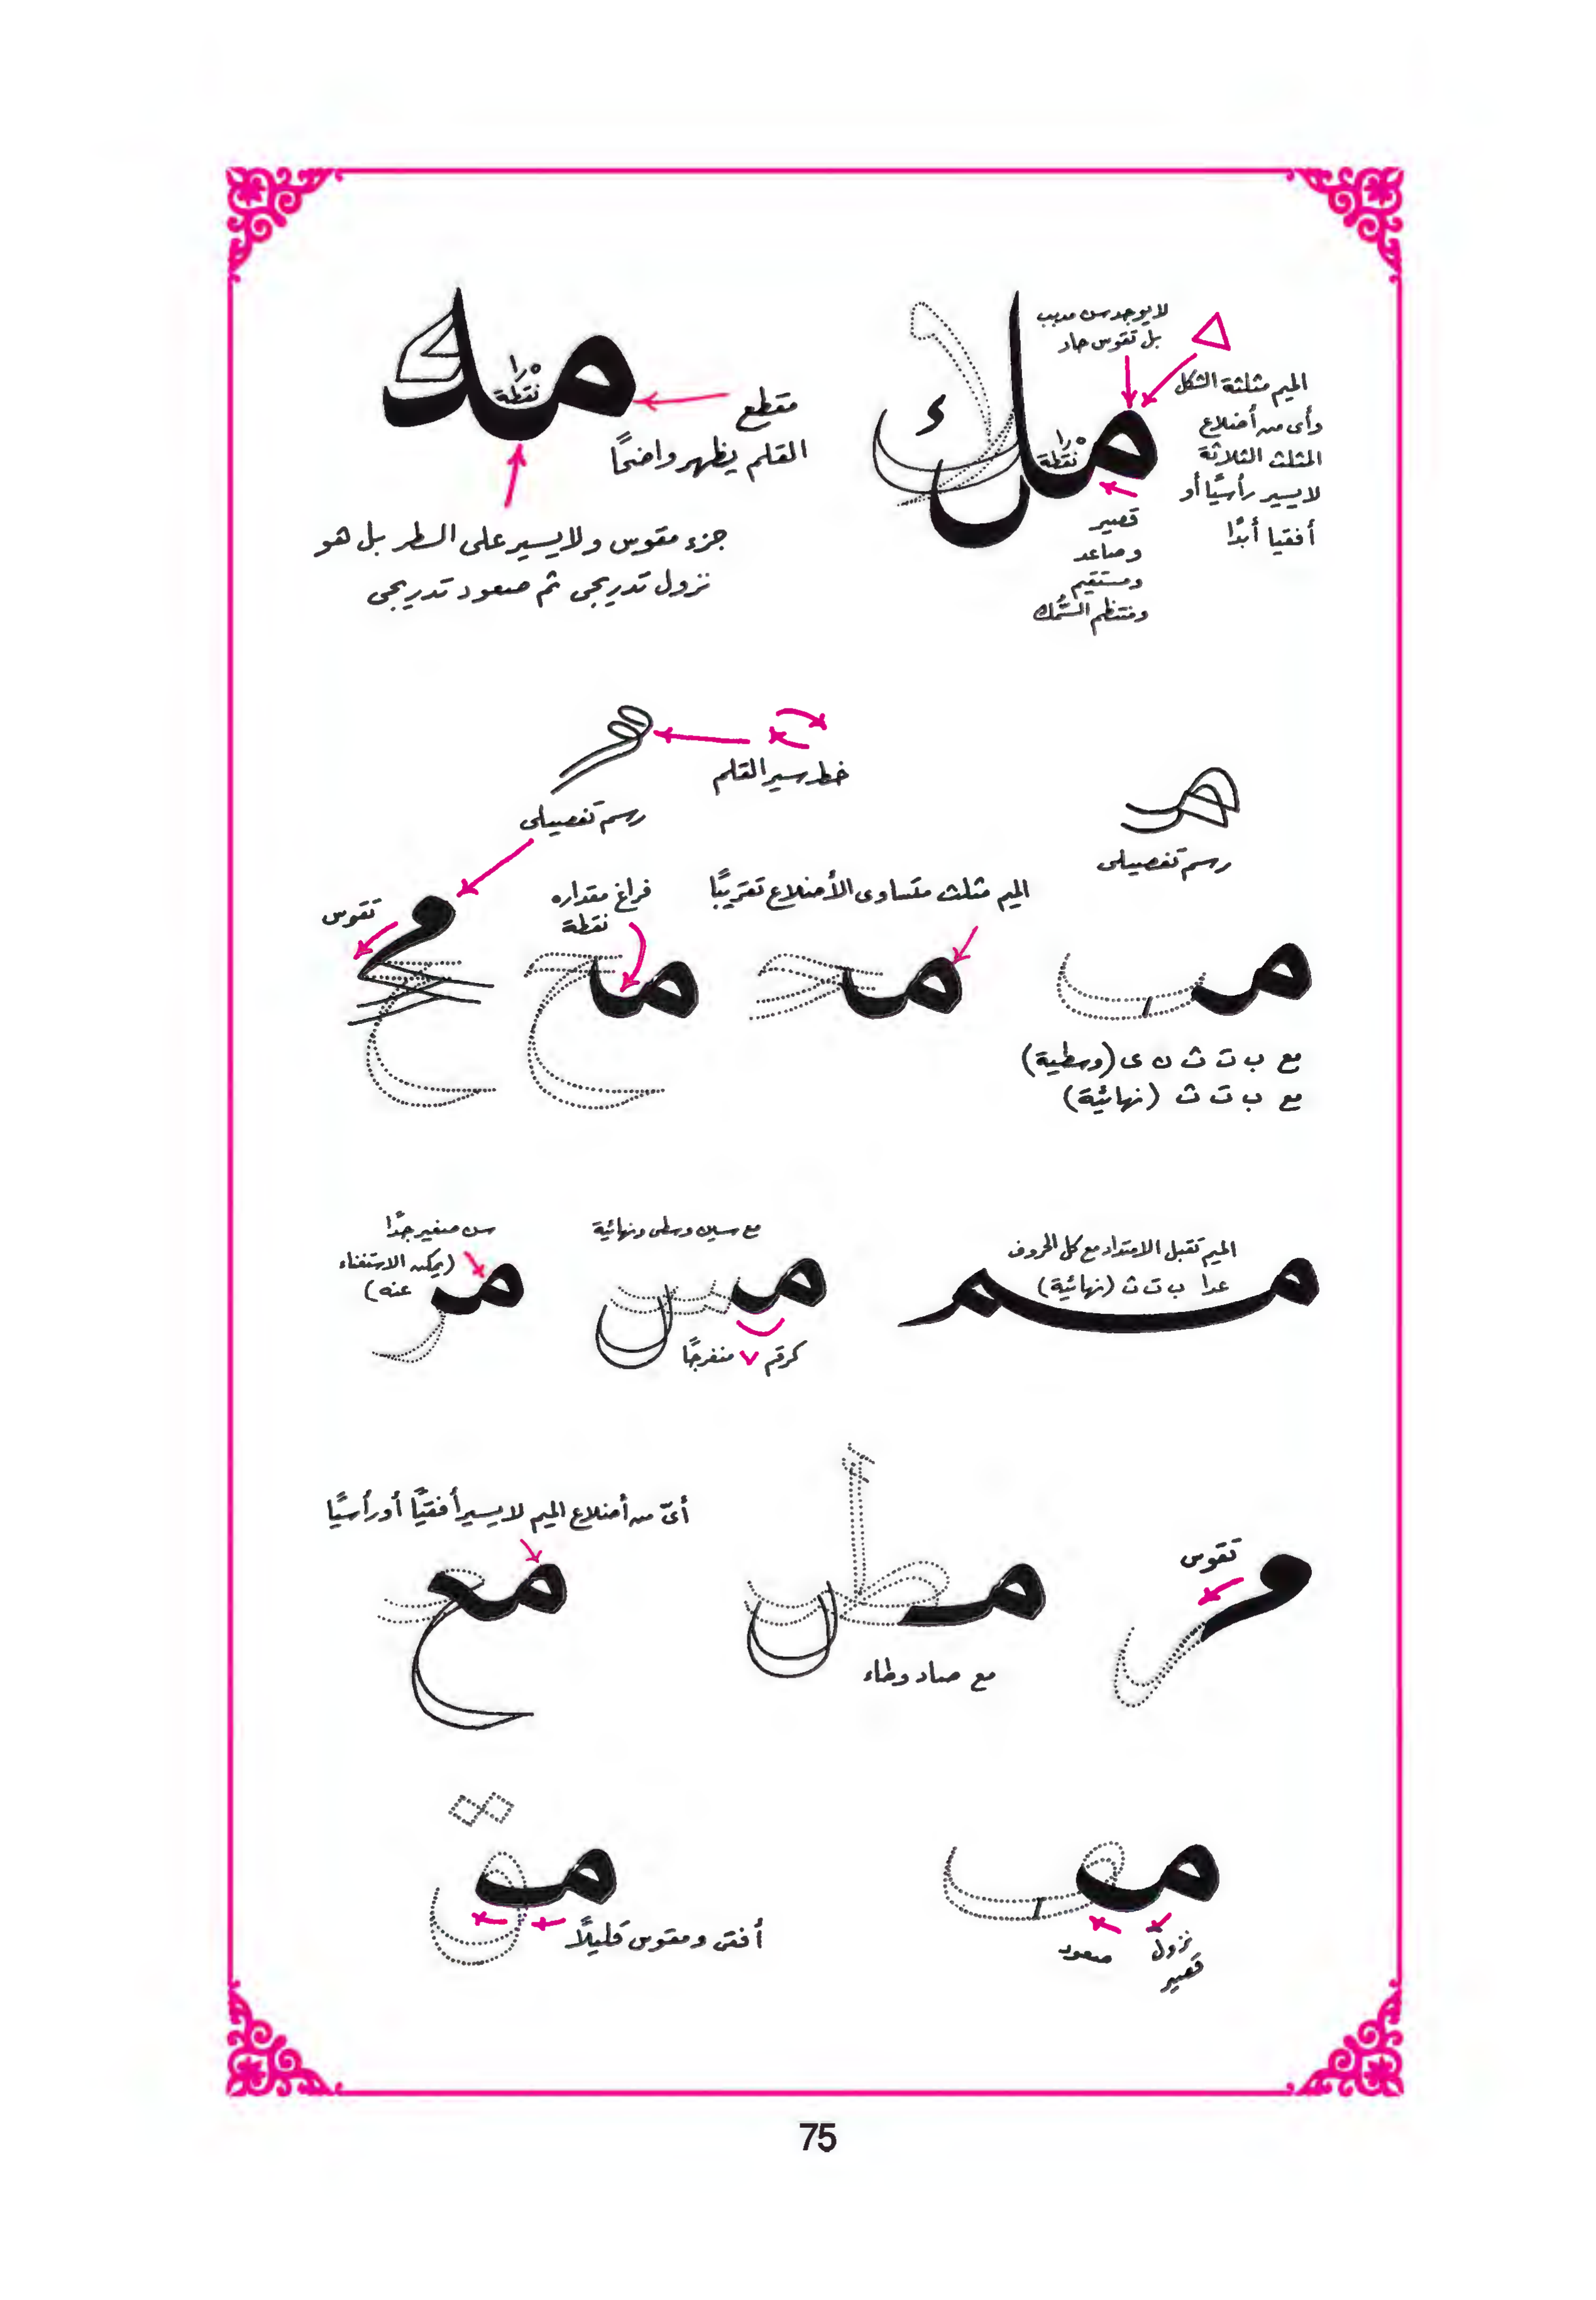 لا يوجد سن مدبب
بل تقوس حاد
الميم مثلثة الشكل
وأى من أضلاع
المثلث الثلاثة
لا يسير رأسيًا أو
أفقيا أبدًا
مل
١٫٥
نقطة
قصير
وصاعد
ومستقيم
ومنتظم السُّمك
مد
١٫٥
نقطة
مقطع
القلم يظهر واضحًا
جزء مقوس ولا يسير على السطر بل هو
نزول تدريجى ثم صعود تدريجى
خط سير القلم
رسم تفصيلى
رسم تفصيلى
الميم مثلث متساوى الأضلاع تقريبًا
فراغ مقداره
نقطة
تقوس
مع ب ت ث ن ى (وسطية)
مع ب ت ث (نهائية)
الميم تقبل الامتداد مع كل الحروف
عدا ب ت ث (نهائية)
مم
مع سين وسطى ونهائية
مس
كرقم ٧ منفرجًا
سن صغير جدًا
(يمكن الاستغناء
عنه)
مر
تقوس
مع صاد وطاء
أىّ من أضلاع الميم لا يسير أفقيًا أو رأسيًا
مع
نزول
قصير
صعود
مق
أفقى ومقوس قليلاً
75